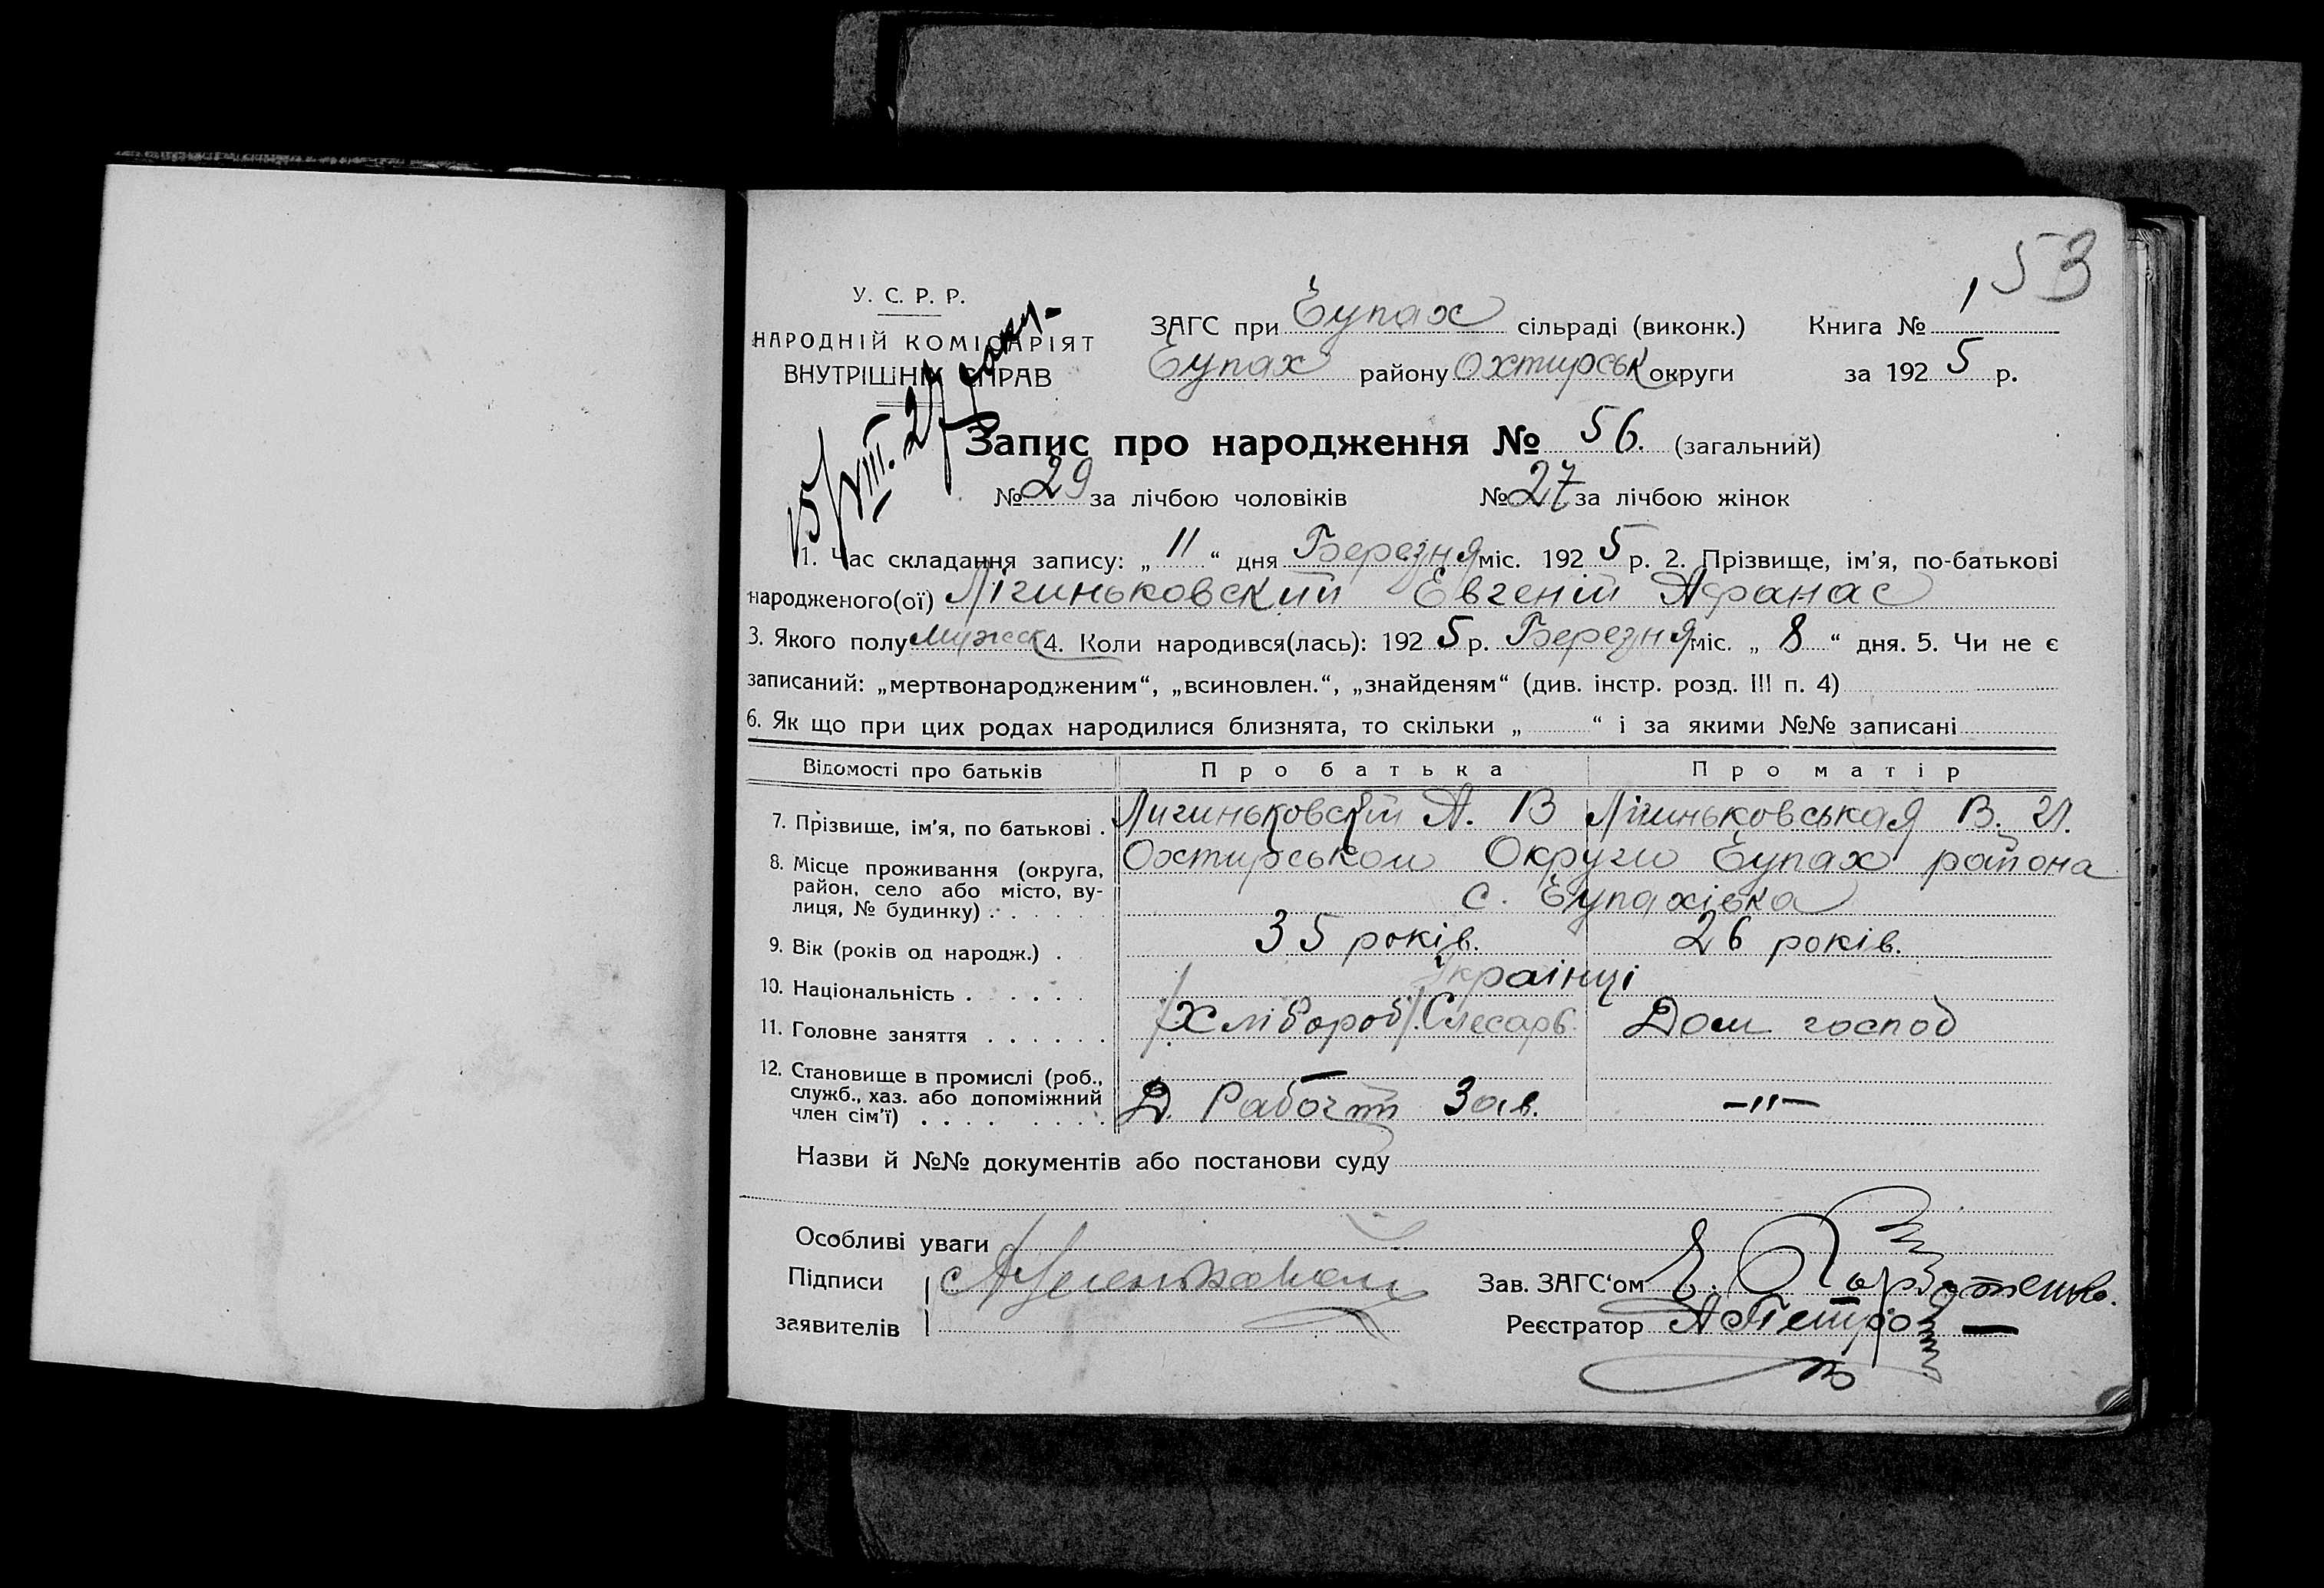 53
У. С. Р. Р.
НАРОДНІЙ КОМІСАРІЯТ
ВНУТРІШНІХ СПРАВ
ЗАГС при Еупах сільраді (виконк.) Книга № 1
Еупах району Охтирськ округи за 1925 р.
15/VIII. 27
Запис про народження № 56. (загальний)
№ 29 за лічбою чоловіків № 27 за лічбою жінок
1. Час складання запису: „ 11 “ дня Березня міс. 1925 р. 2. Прізвище, ім’я, по-батькові
народженого(ої) Лігиньковский Евгеній Афанас
3. Якого полу Мужск 4. Коли народився(лась): 1925 р. Березня міс. „ 8 “ дня. 5. Чи не є
записаний: „мертвонародженим“, „всиновлен.“, „знайденям“ (див. інстр. розд. III п. 4)
6. Як що при цих родах народилися близнята, то скільки „ “ і за якими №№ записані
Відомості про батьків Про батька Про матір
7. Прізвище, ім’я, по батькові . Лигиньковский А. В Лігиньковськая В. И.
8. Місце проживання (округа, Охтирськои Округи Еупах района
район, село або місто, ву-
лиця, № будинку) . . с. Еупахівка
9. Вік (років од народж.) . 35 років. 26 років.
10. Національність . . . . . . Украінці
11. Головне заняття . . . . . . /Хлібороб/. Слесарь. Дом господ
12. Становище в промислі (роб.,
служб., хаз. або допоміжний
член сім’ї) . . . . . . . . Д. Рабочий Зав. —"—
Назви й №№ документів або постанови суду
Особливі уваги
Підписи Зав. ЗАГС‘ом Е.
заявителів Реєстратор